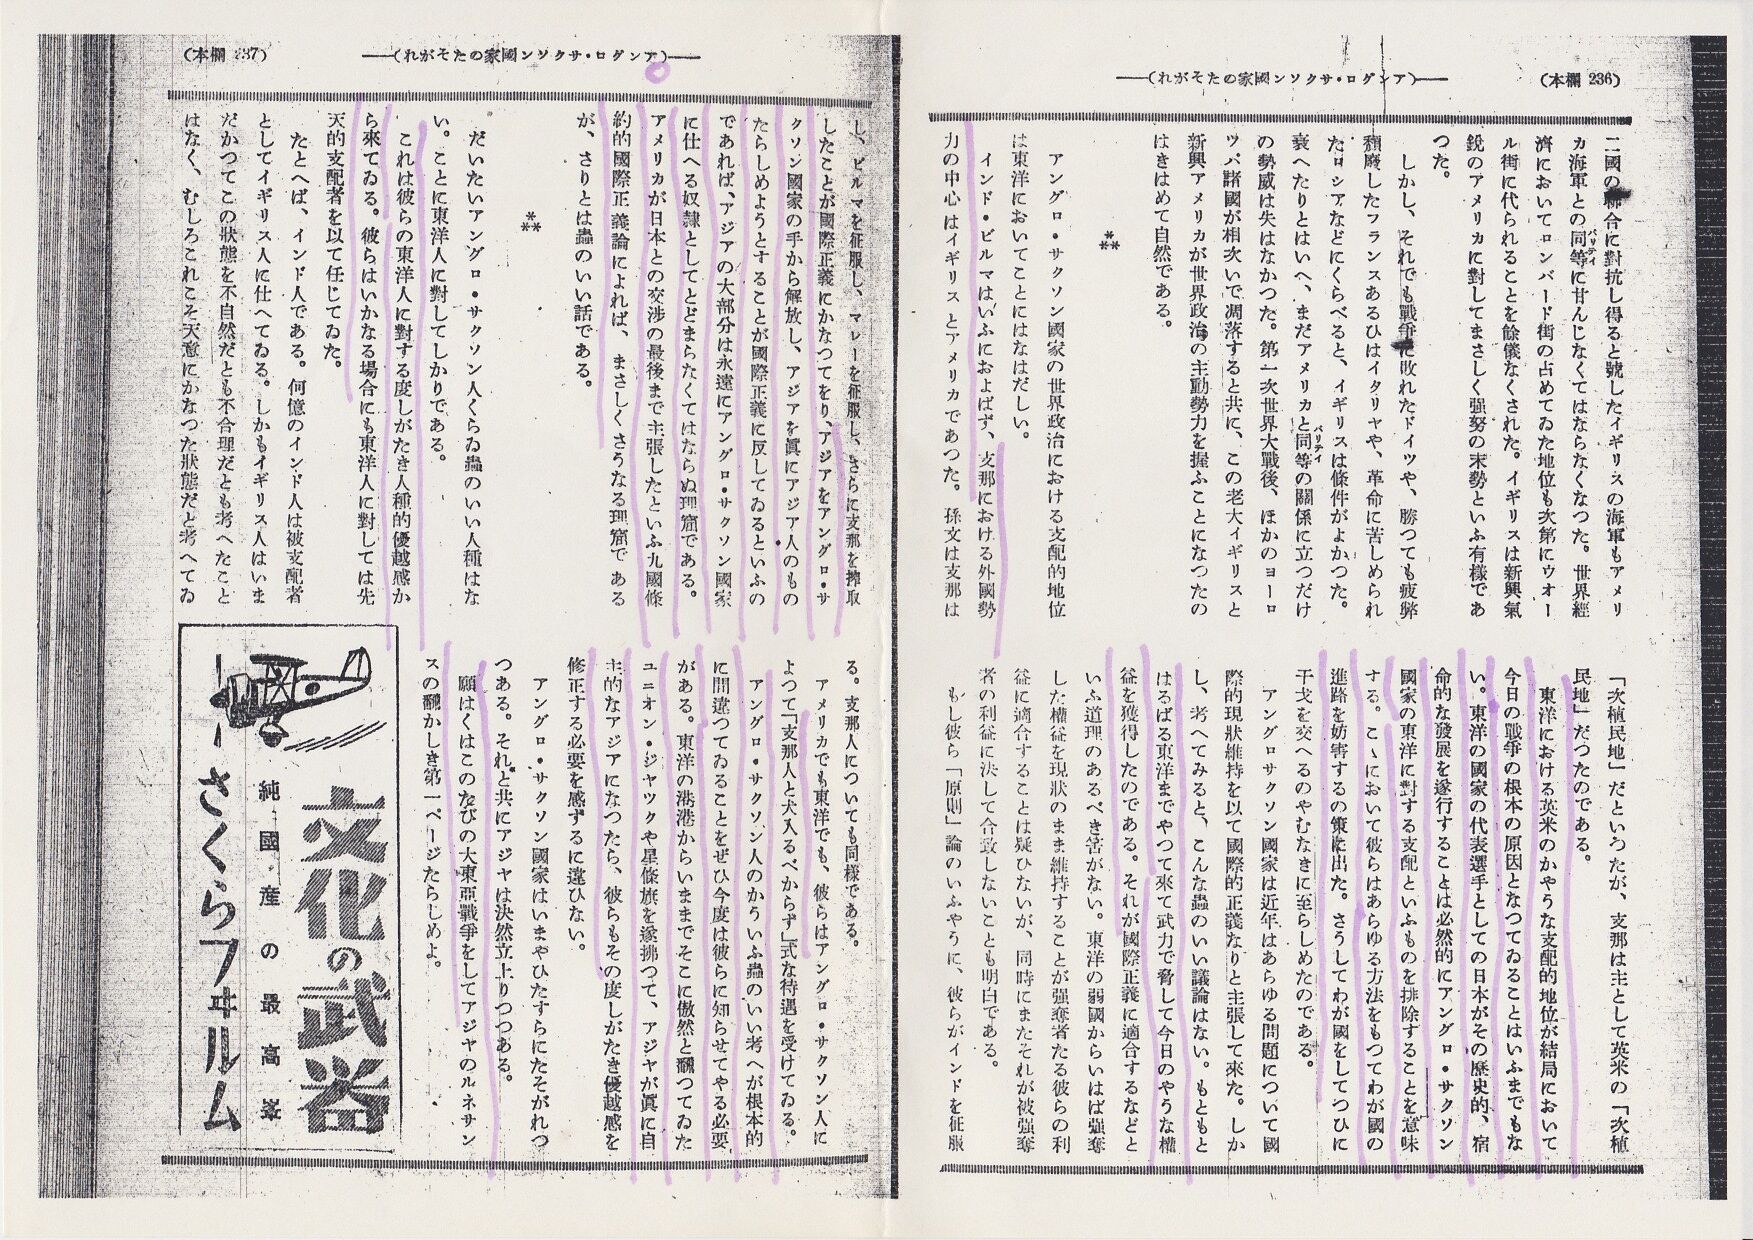 (本欄 236)
――(アングロ・サクソン國家のたそがれ)――
二國の聯合に對抗し得ると號したイギリスの海軍もアメリ
カ海軍との同等に甘んじなくてはならなくなつた。世界經
パリテイ
濟においてロンバード街の占めてゐた地位も次第にウオー
ル街に代られることを餘儀なくされた。イギリスは新興氣
銳のアメリカに對してまさしく强弩の末勢といふ有樣であ
つた。
しかし、それでも戰爭に敗れたドイツや、勝つても疲弊
頽廢したフランスあるひはイタリヤや、革命に苦しめられ
たロシアなどにくらべると、イギリスは條件がよかつた。
衰へたりとはいへ、まだアメリカと同等の關係に立つだけ
パリテイ
の勢威は失はなかつた。第一次世界大戰後、ほかのヨーロ
ツパ諸國が相次いで凋落すると共に、この老大イギリスと
新興アメリカが世界政治の主動勢力を握ふことになつたの
はきはめて自然である。
***
アングロ・サクソン國家の世界政治における支配的地位
は東洋においてことにはなはだしい。
インド・ビルマはいふにおよばず、支那における外國勢
力の中心はイギリスとアメリカであつた。孫文は支那は
「次植民地」だといつたが、支那は主として英米の「次植
民地」だつたのである。
東洋における英米のかやうな支配的地位が結局において
今日の戰爭の根本の原因となつてゐることはいふまでもな
い。東洋の國家の代表選手としての日本がその歷史的、宿
命的な發展を遂行することは必然的にアングロ・サクソン
國家の東洋に對する支配といふものを排除することを意味
する。こゝにおいて彼らはあらゆる方法をもつてわが國の
進路を妨害するの策に出た。さうしてわが國をしてつひに
干戈を交へるのやむなきに至らしめたのである。
アングロサクソン國家は近年はあらゆる問題について國
際的現狀維持を以て國際的正義なりと主張して來た。しか
し、考へてみると、こんな蟲のいい議論はない。もともと
はるばる東洋までやつて來て武力で脅して今日のやうな權
益を獲得したのである。それが國際正義に適合するなどと
いふ道理のあるべき筈がない。東洋の弱國からいはば强奪
した權益を現狀のまま維持することが强奪者たる彼らの利
益に適合することは疑ひないが、同時にまたそれが被强奪
者の利益に決して合致しないことも明白である。
もし彼ら「原則」論のいふやうに、彼らがインドを征服
(本欄 237)
――(アングロ・サクソン國家のたそがれ)――
し、ビルマを征服し、マレーを征服し、さらに支那を搾取
したことが國際正義にかなつてをり、アジアをアングロ・サ
クソン國家の手から解放し、アジアを眞にアジア人のもの
たらしめようとすることが國際正義に反してゐるといふの
であれば、アジアの大部分は永遠にアングロ・サクソン國家
に仕へる奴隸としてとどまらなくてはならぬ理窟である。
アメリカが日本との交涉の最後まで主張したといふ九國條
約的國際正義論によれば、まさしくさうなる理窟である
が、さりとは蟲のいい話である。
***
だいたいアングロ・サクソン人くらゐ蟲のいい人種はな
い。ことに東洋人に對してしかりである。
これは彼らの東洋人に對する度しがたき人種的優越感か
ら來てゐる。彼らはいかなる場合にも東洋人に對しては先
天的支配者を以て任じてゐた。
たとへば、インド人である。何億のインド人は被支配者
としてイギリス人に仕へてゐる。しかもイギリス人はいま
だかつてこの狀態を不自然だとも不合理だとも考へたこと
はなく、むしろこれこそ天意にかなつた狀態だと考へてゐ
る。支那人についても同樣である。
アメリカでも東洋でも、彼らはアングロ・サクソン人に
よつて「支那人と犬入るべからず」式な待遇を受けてゐる。
アングロ・サクソン人のかういふ蟲のいい考へが根本的
に間違つてゐることをぜひ今度は彼らに知らせてやる必要
がある。東洋の港港からいままでそこに傲然と飜つてゐた
ユニオン・ジヤツクや星條旗を逐拂つて、アジヤが眞に自
主的なアジアになつたら、彼らもその度しがたき優越感を
修正する必要を感ずるに違ひない。
アングロ・サクソン國家はいまやひたすらにたそがれつ
つある。それと共にアジヤは決然立上りつつある。
願はくはこのたびの大東亞戰爭をしてアジヤのルネサン
スの輝かしき第一ページたらしめよ。
文化の武器
純國産の最高峯
さくらフヰルム